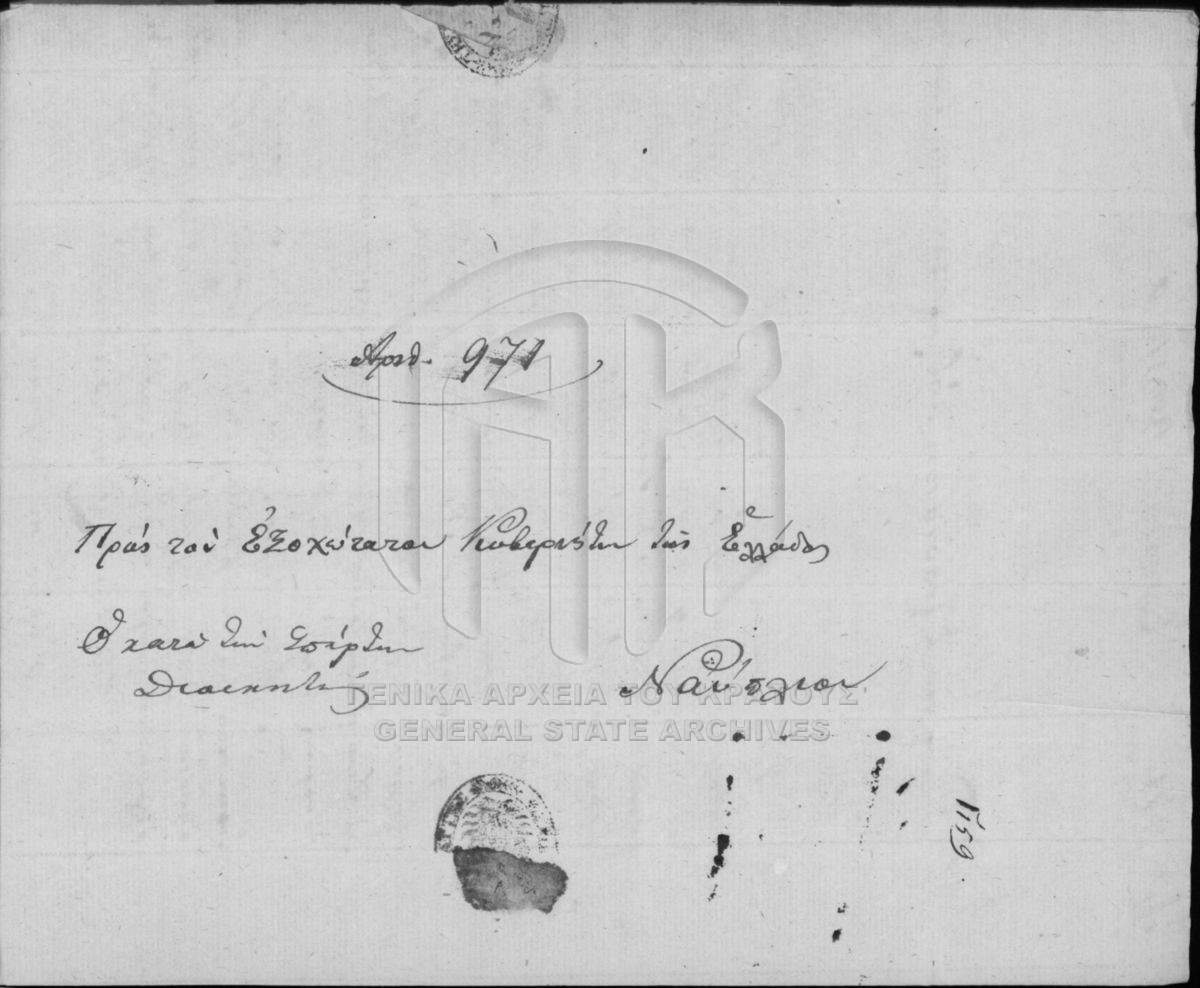 Αριθ. 971
Πρός τον Εξοχώτατον Κυβερνήτην της Ελλάδος
Ο κατά την Σπάρτην
Διοικητής
Ναύπλιον
ΓΕΝΙΚΑ ΑΡΧΕΙΑ ΤΟΥ ΚΡΑΤΟΥΣ
GENERAL STATE ARCHIVES
1759